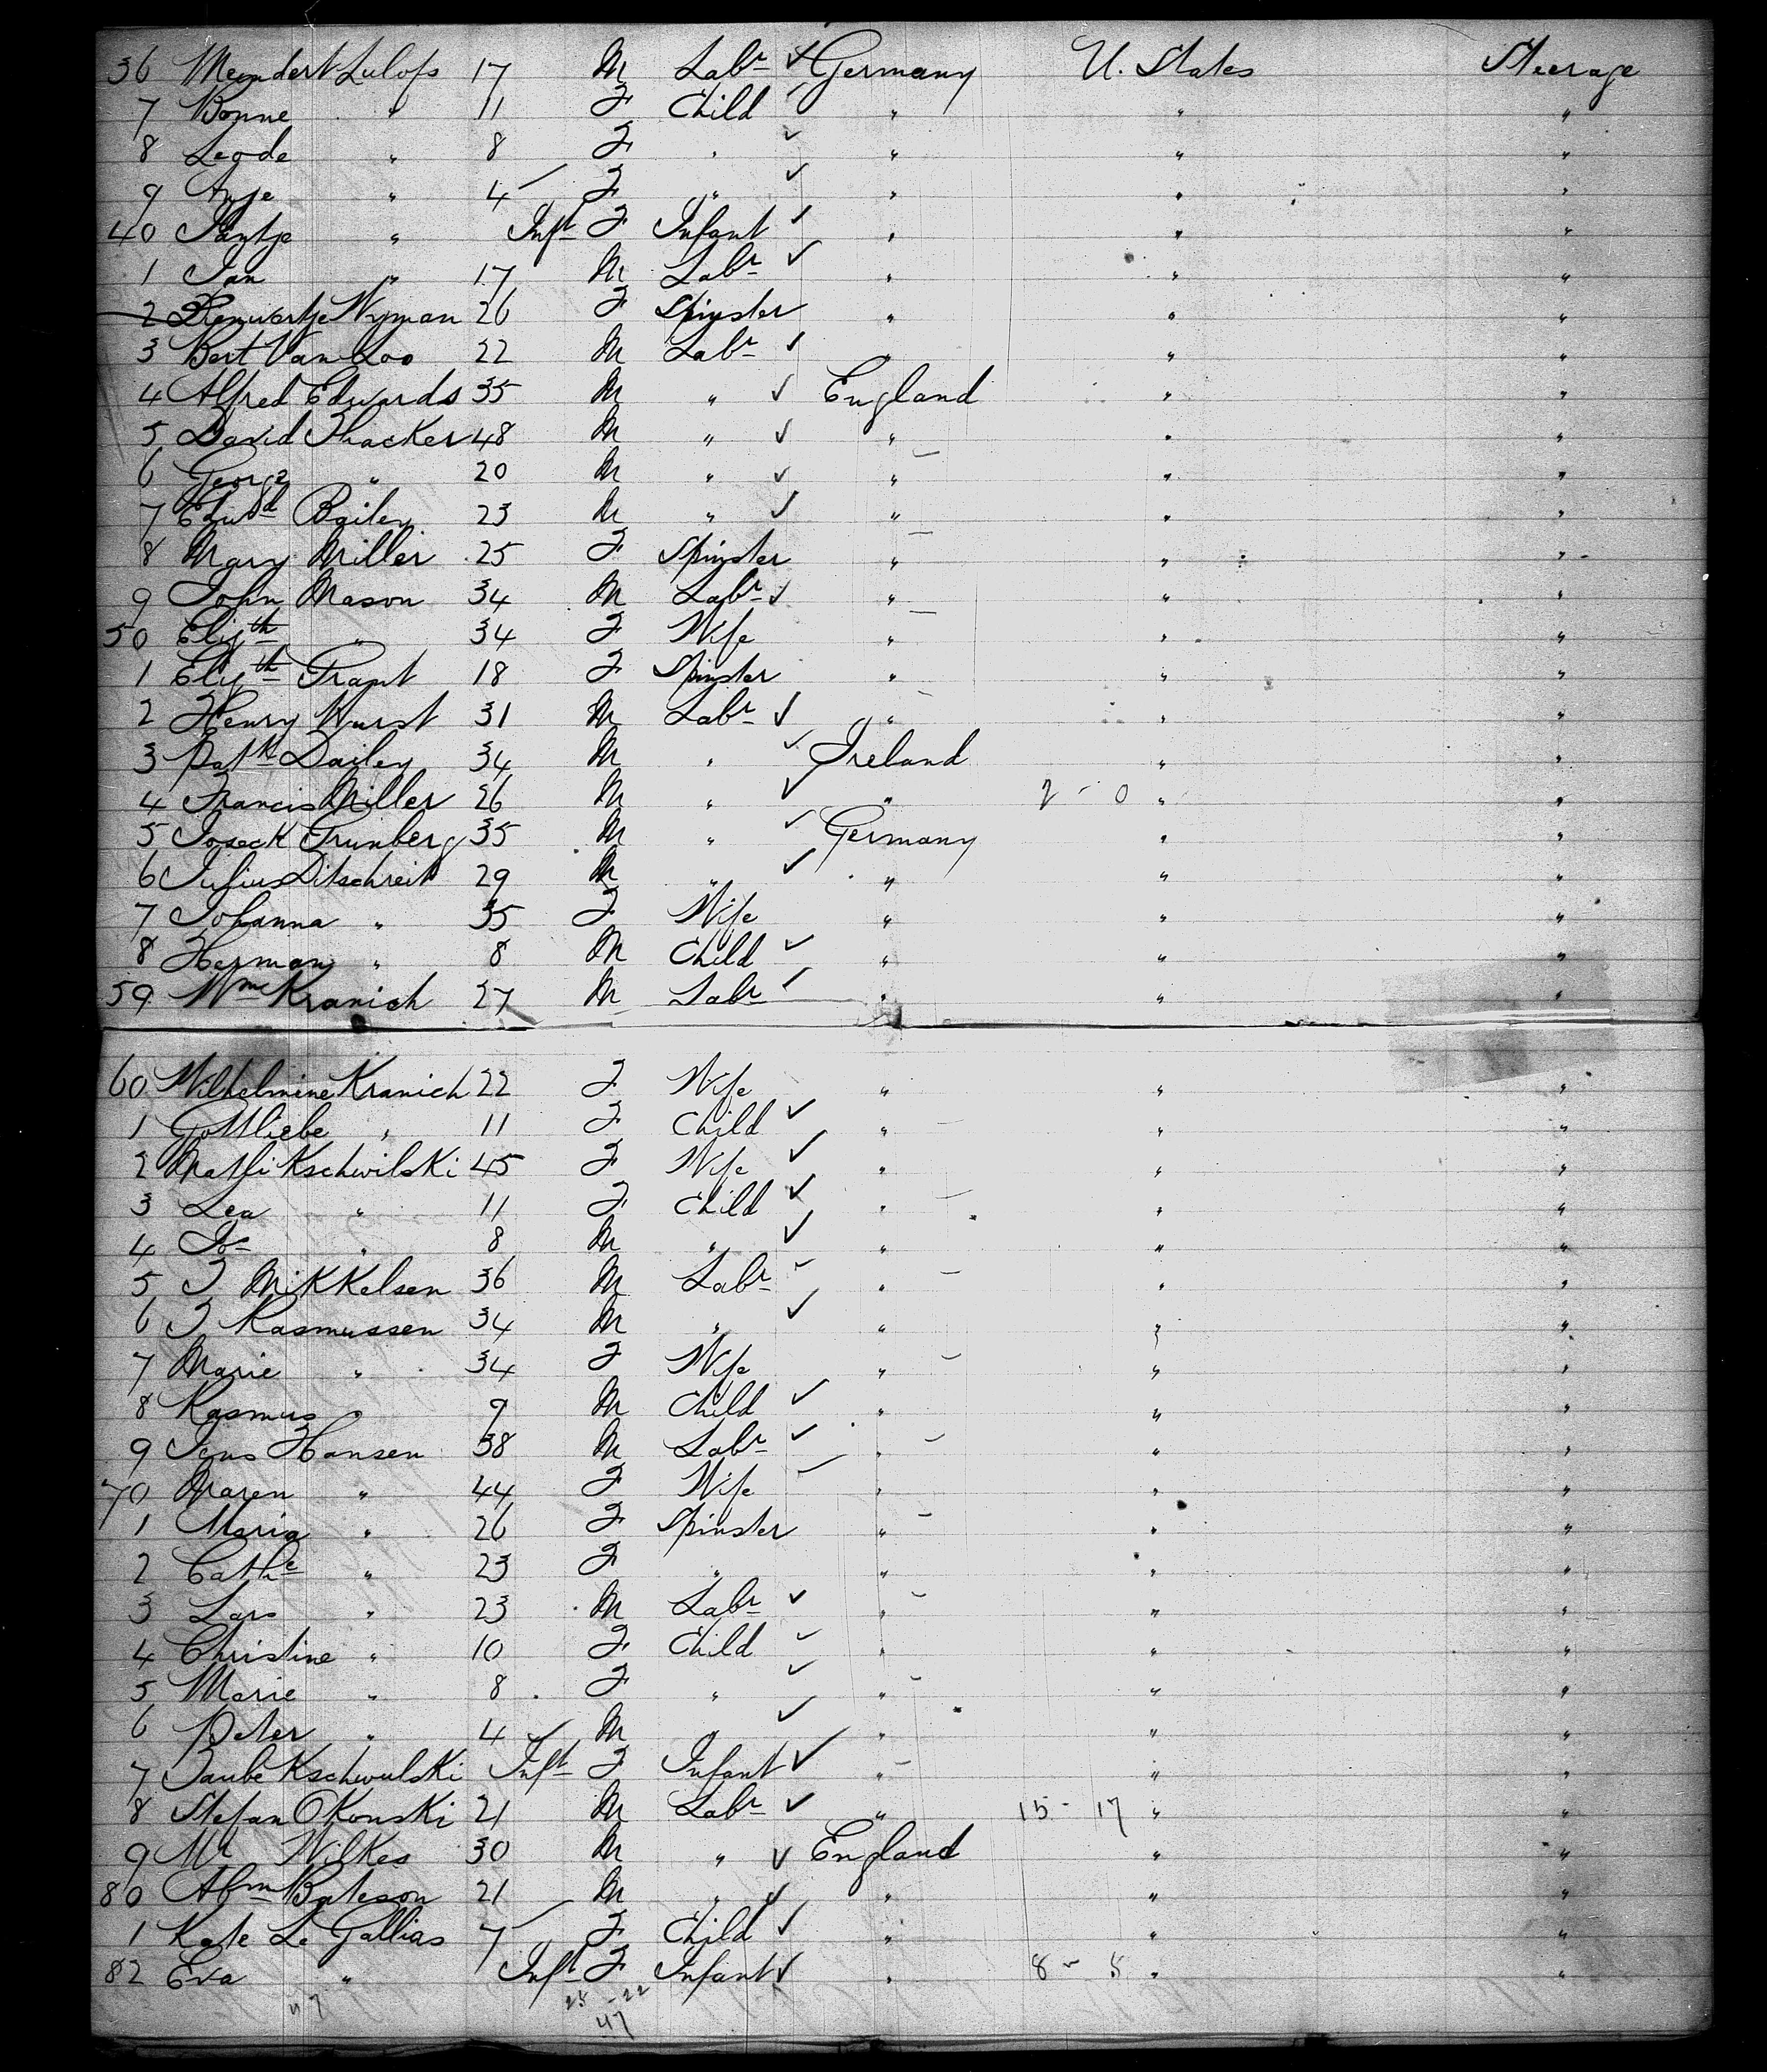 36 Meindert Lulofs 17 M Labr ✓ Germany U. States Steerage
7 Bonne " 11 F Child ✓ " " "
8 " 8 F " ✓ " " "
9 Anje " 4 F " ✓ " " "
40 Jantje " Inft F Infant ✓ " " "
1 Jan " 17 M Labr ✓ " " "
2 Wyman 26 F Spinster " " "
3 Bert Van Loo 22 M Labr ✓ " " "
4 Alfred Edwards 35 M " ✓ England " "
5 David Thacker 48 M " ✓ " " "
6 George " 20 M " ✓ " " "
7 Edwd Bailey 23 M " ✓ " " "
8 Mary Miller 25 F Spinster " " "
9 John Mason 34 M Labr ✓ " " "
50 Elizth " 34 F Wife " " "
1 Elizth Grant 18 F Spinster " " "
2 Henry Hurst 31 M Labr ✓ " " "
3 Patk Dailey 34 M " ✓ Ireland " "
4 Francis Miller 26 M " ✓ " 2 - 0 " "
5 Joseck Grunberg 35 M " ✓ Germany " "
6 Julius Ditschreit 29 M " ✓ " " "
7 Johanna " 35 F Wife " " "
8 Herman " 8 M Child ✓ " " "
59 Wm Kranich 27 M Labr ✓ " " "
60 Wilhelmine Kranich 22 F Wife " " "
1 Gottliebe " 11 F Child ✓ " " "
2 Kschwilski 45 F Wife ✓ " " "
3 Lea " 11 F Child ✓ " " "
4 " 8 M " ✓ " " "
5 J Mikkelsen 36 M Labr ✓ " " "
6 J Rasmussen 34 M " ✓ " " "
7 Marie " 34 F Wife " " "
8 Rasmus " 9 M Child ✓ " " "
9 Jens Hansen 38 M Labr ✓ " " "
70 Maren " 44 F Wife ✓ " " "
1 Maria " 26 F Spinster " " "
2 Cathe " 23 F " " " "
3 Lars " 23 M Labr ✓ " " "
4 Christine " 10 F Child ✓ " " "
5 Marie " 8 F " ✓ " " "
6 Peter " 4 M " ✓ " " "
7 Taube Kschwulski Inft F Infant ✓ " " "
8 Stefan OKonski 21 M Labr ✓ " 15 - 17 " "
9 Mr Wilkes 30 M " ✓ England " "
80 Abm Bateson 21 M " ✓ " " "
1 Kate Le Gallias 7 F Child ✓ " " "
82 Eva " Inft F Infant ✓ " 8 - 5 " "
47 25 - 22
47